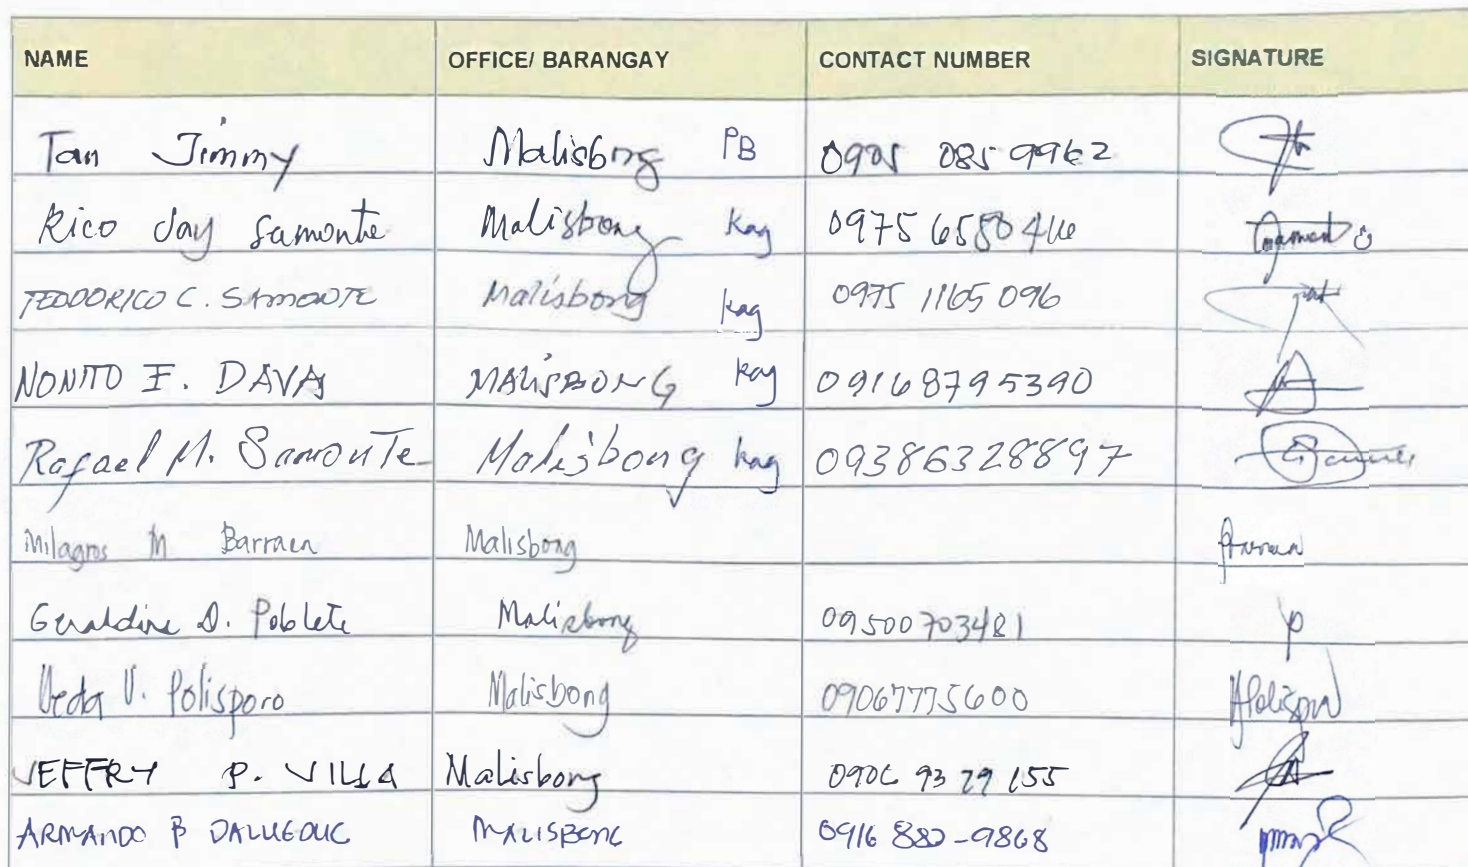 NAME OFFICE/ BARANGAY CONTACT NUMBER SIGNATURE
Tan Jimmy Malisbong PB 0905 085 9962
Rico Jay Samonte Malisbong Kag 0975 6580
TEODORICO C. SAMONTE Malisbong kag 0975 1165 096
NONITO F. DAVA MALISBONG kag 09168795390
Rafael M. Samonte Malisbong kag 09386328897
Milagros M Barraca Malisbong
Geraldine D. Poblete Malisbong 09500703481
Veda V. Polisporo Malisbong 09067775600
JEFFRY P. VILLA Malisbong 0906 93 29 155
ARMANDO B Malisbong 0916 880-9868